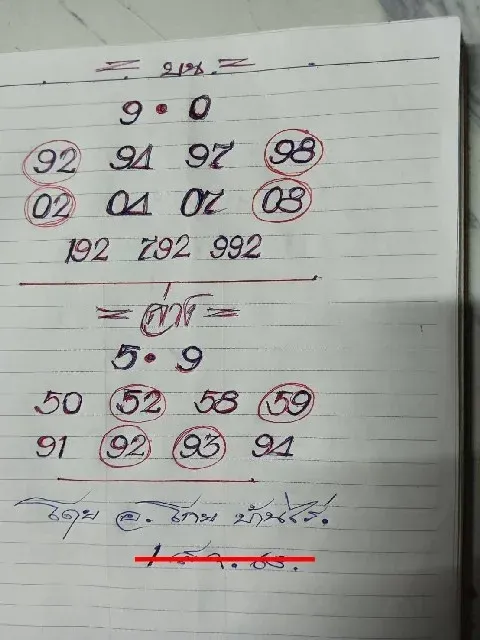 = บน =
9 • 0
92 94 97 98
02 04 07 08
192 792 992
= ล่าง =
5 • 9
50 52 58 59
91 92 93 94
โดย อ. ไทย บ้านไร่.